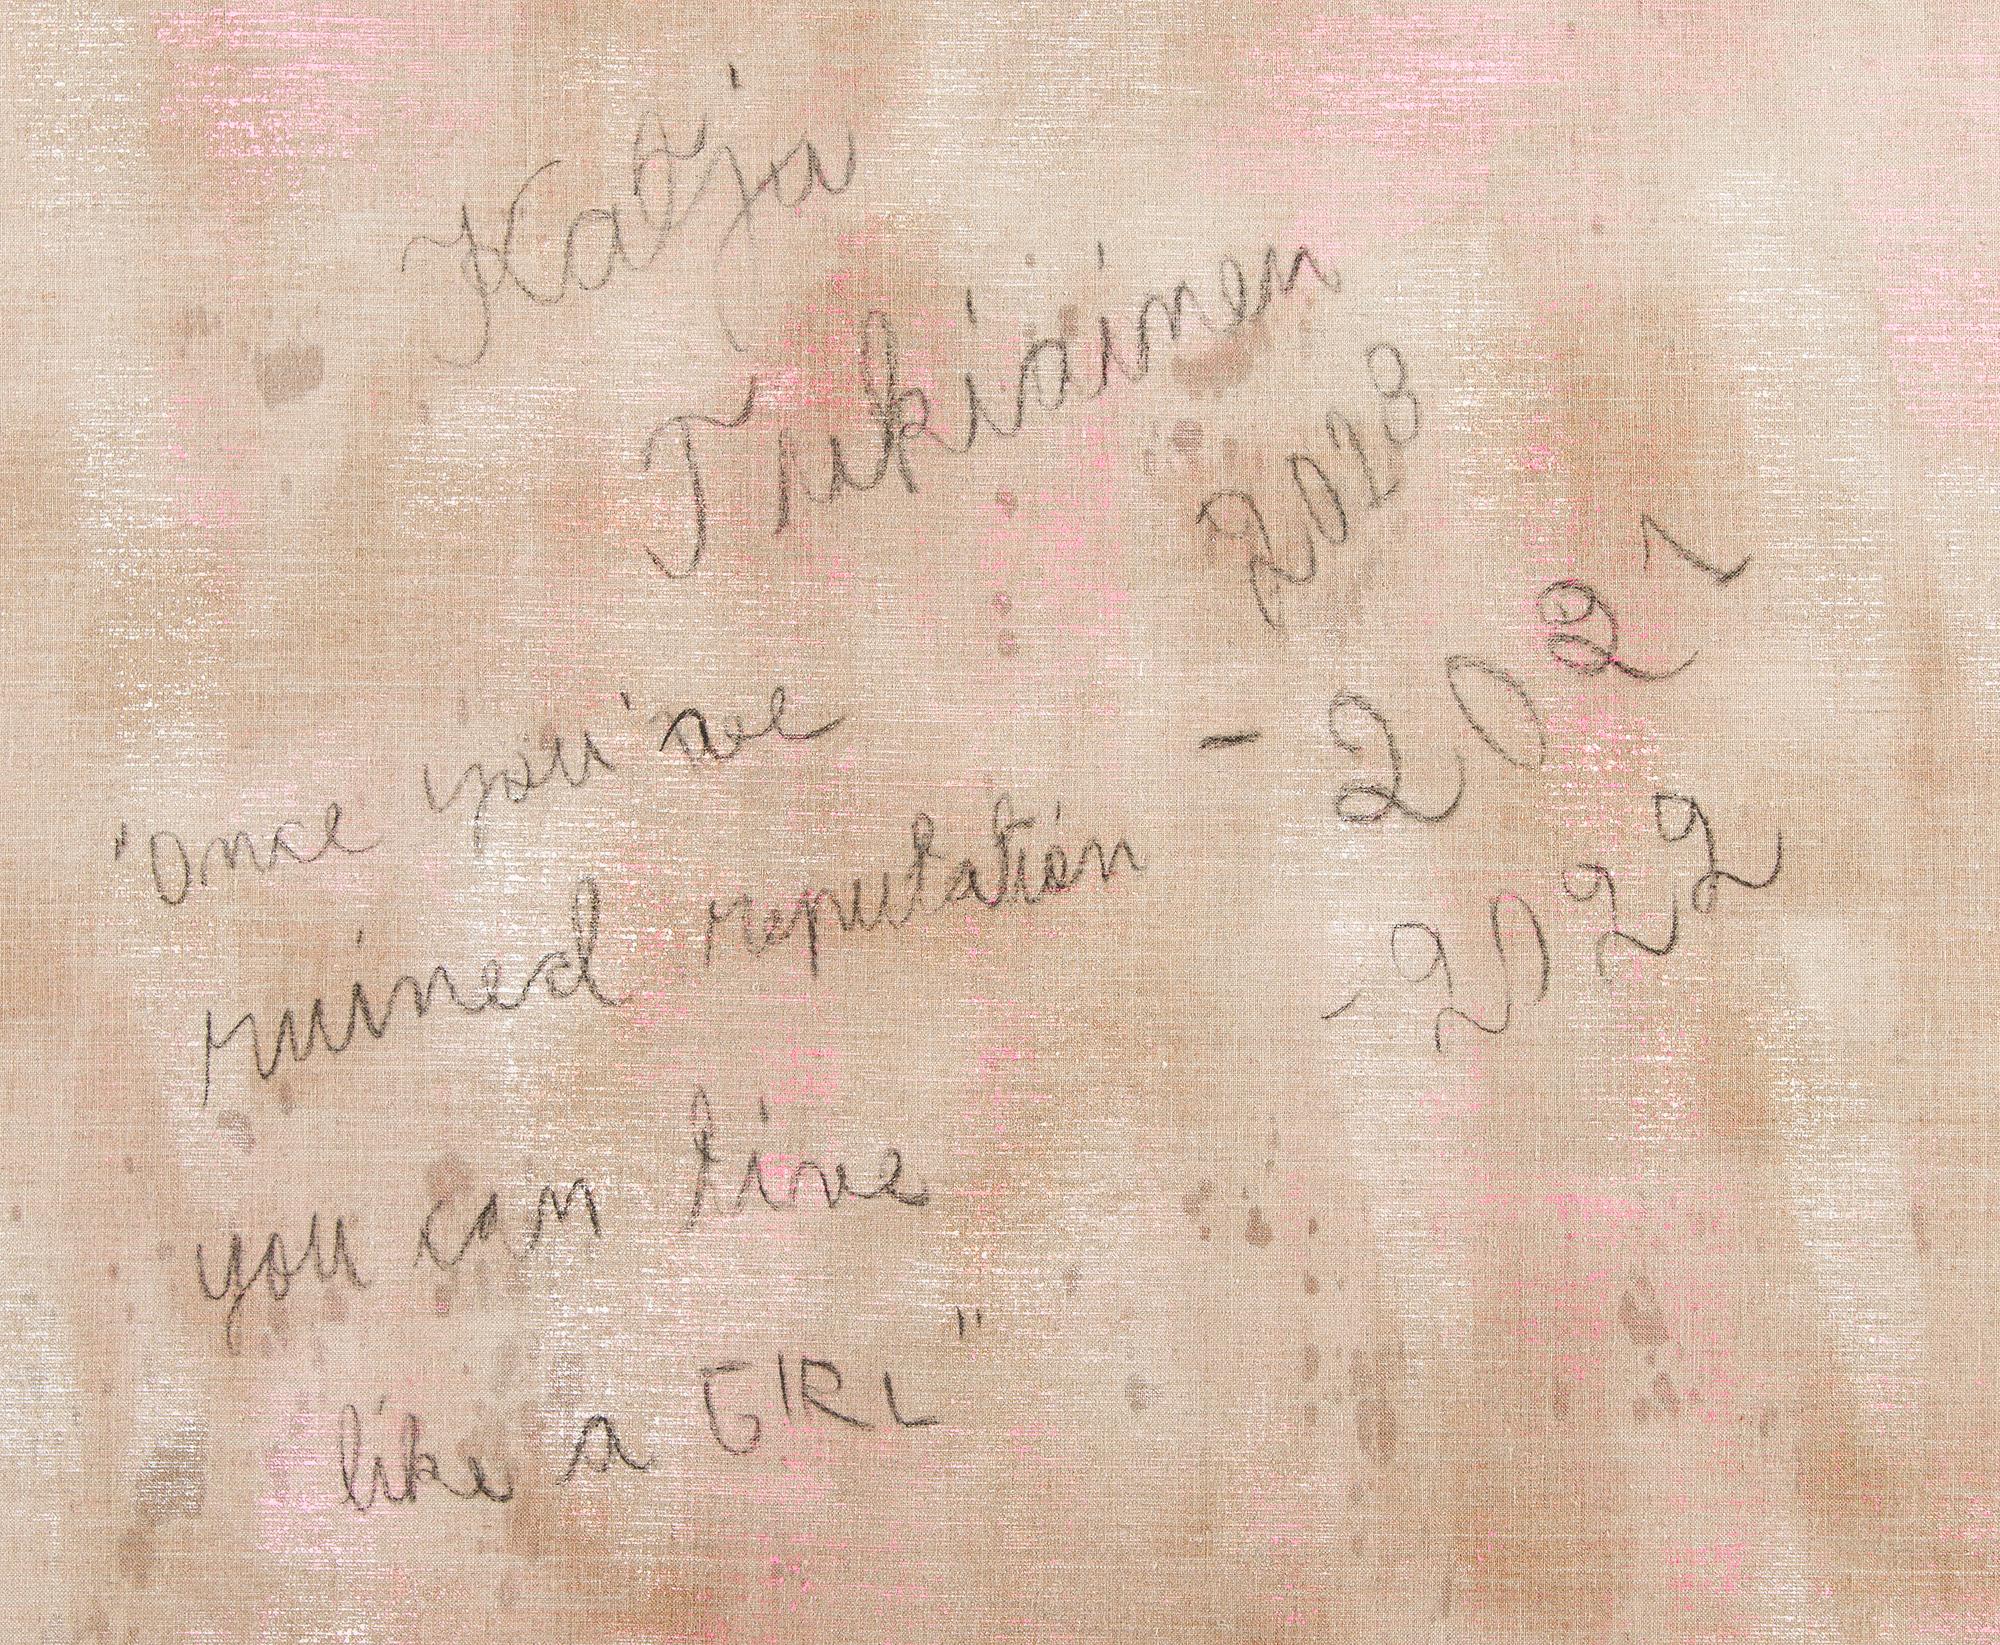 Katja
Tukiainen
2013
- 2021
- 2022
"once you've
ruined reputation
you can live
like a GIRL"